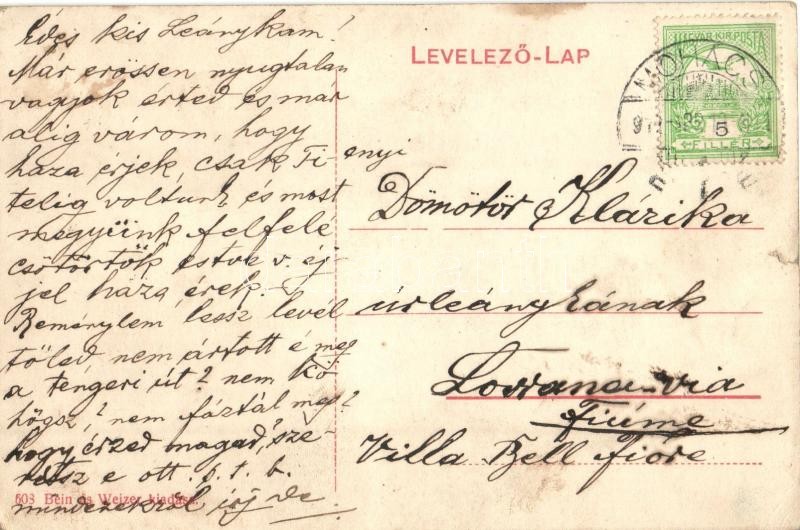 Édes kis Leánykam!
Már erössen nyugtalan
vagyok érted és már
alig várom, hogy
haza érjek, csak Ti-
telig voltunk és most
megyünk felfelé
csötörtök estve v. éj-
jel haza érek.-
Reménylem lessz levél
töled, nem ártott é meg
a tengeri út? nem kö
högsz? nem fáztál meg?
hogy érzed magad, sze-
retsz e ott. s. t. b.
mindezekröl irj de
enyi
LEVELEZŐ-LAP
MAGYAR KIR. POSTA
5
FILLÉR
MOHÁCS
Dömötör Klárika
úrleányának
Lovrana via
Fiúme
Villa Bell Fiore
503 Bein és Weizer kiadása.